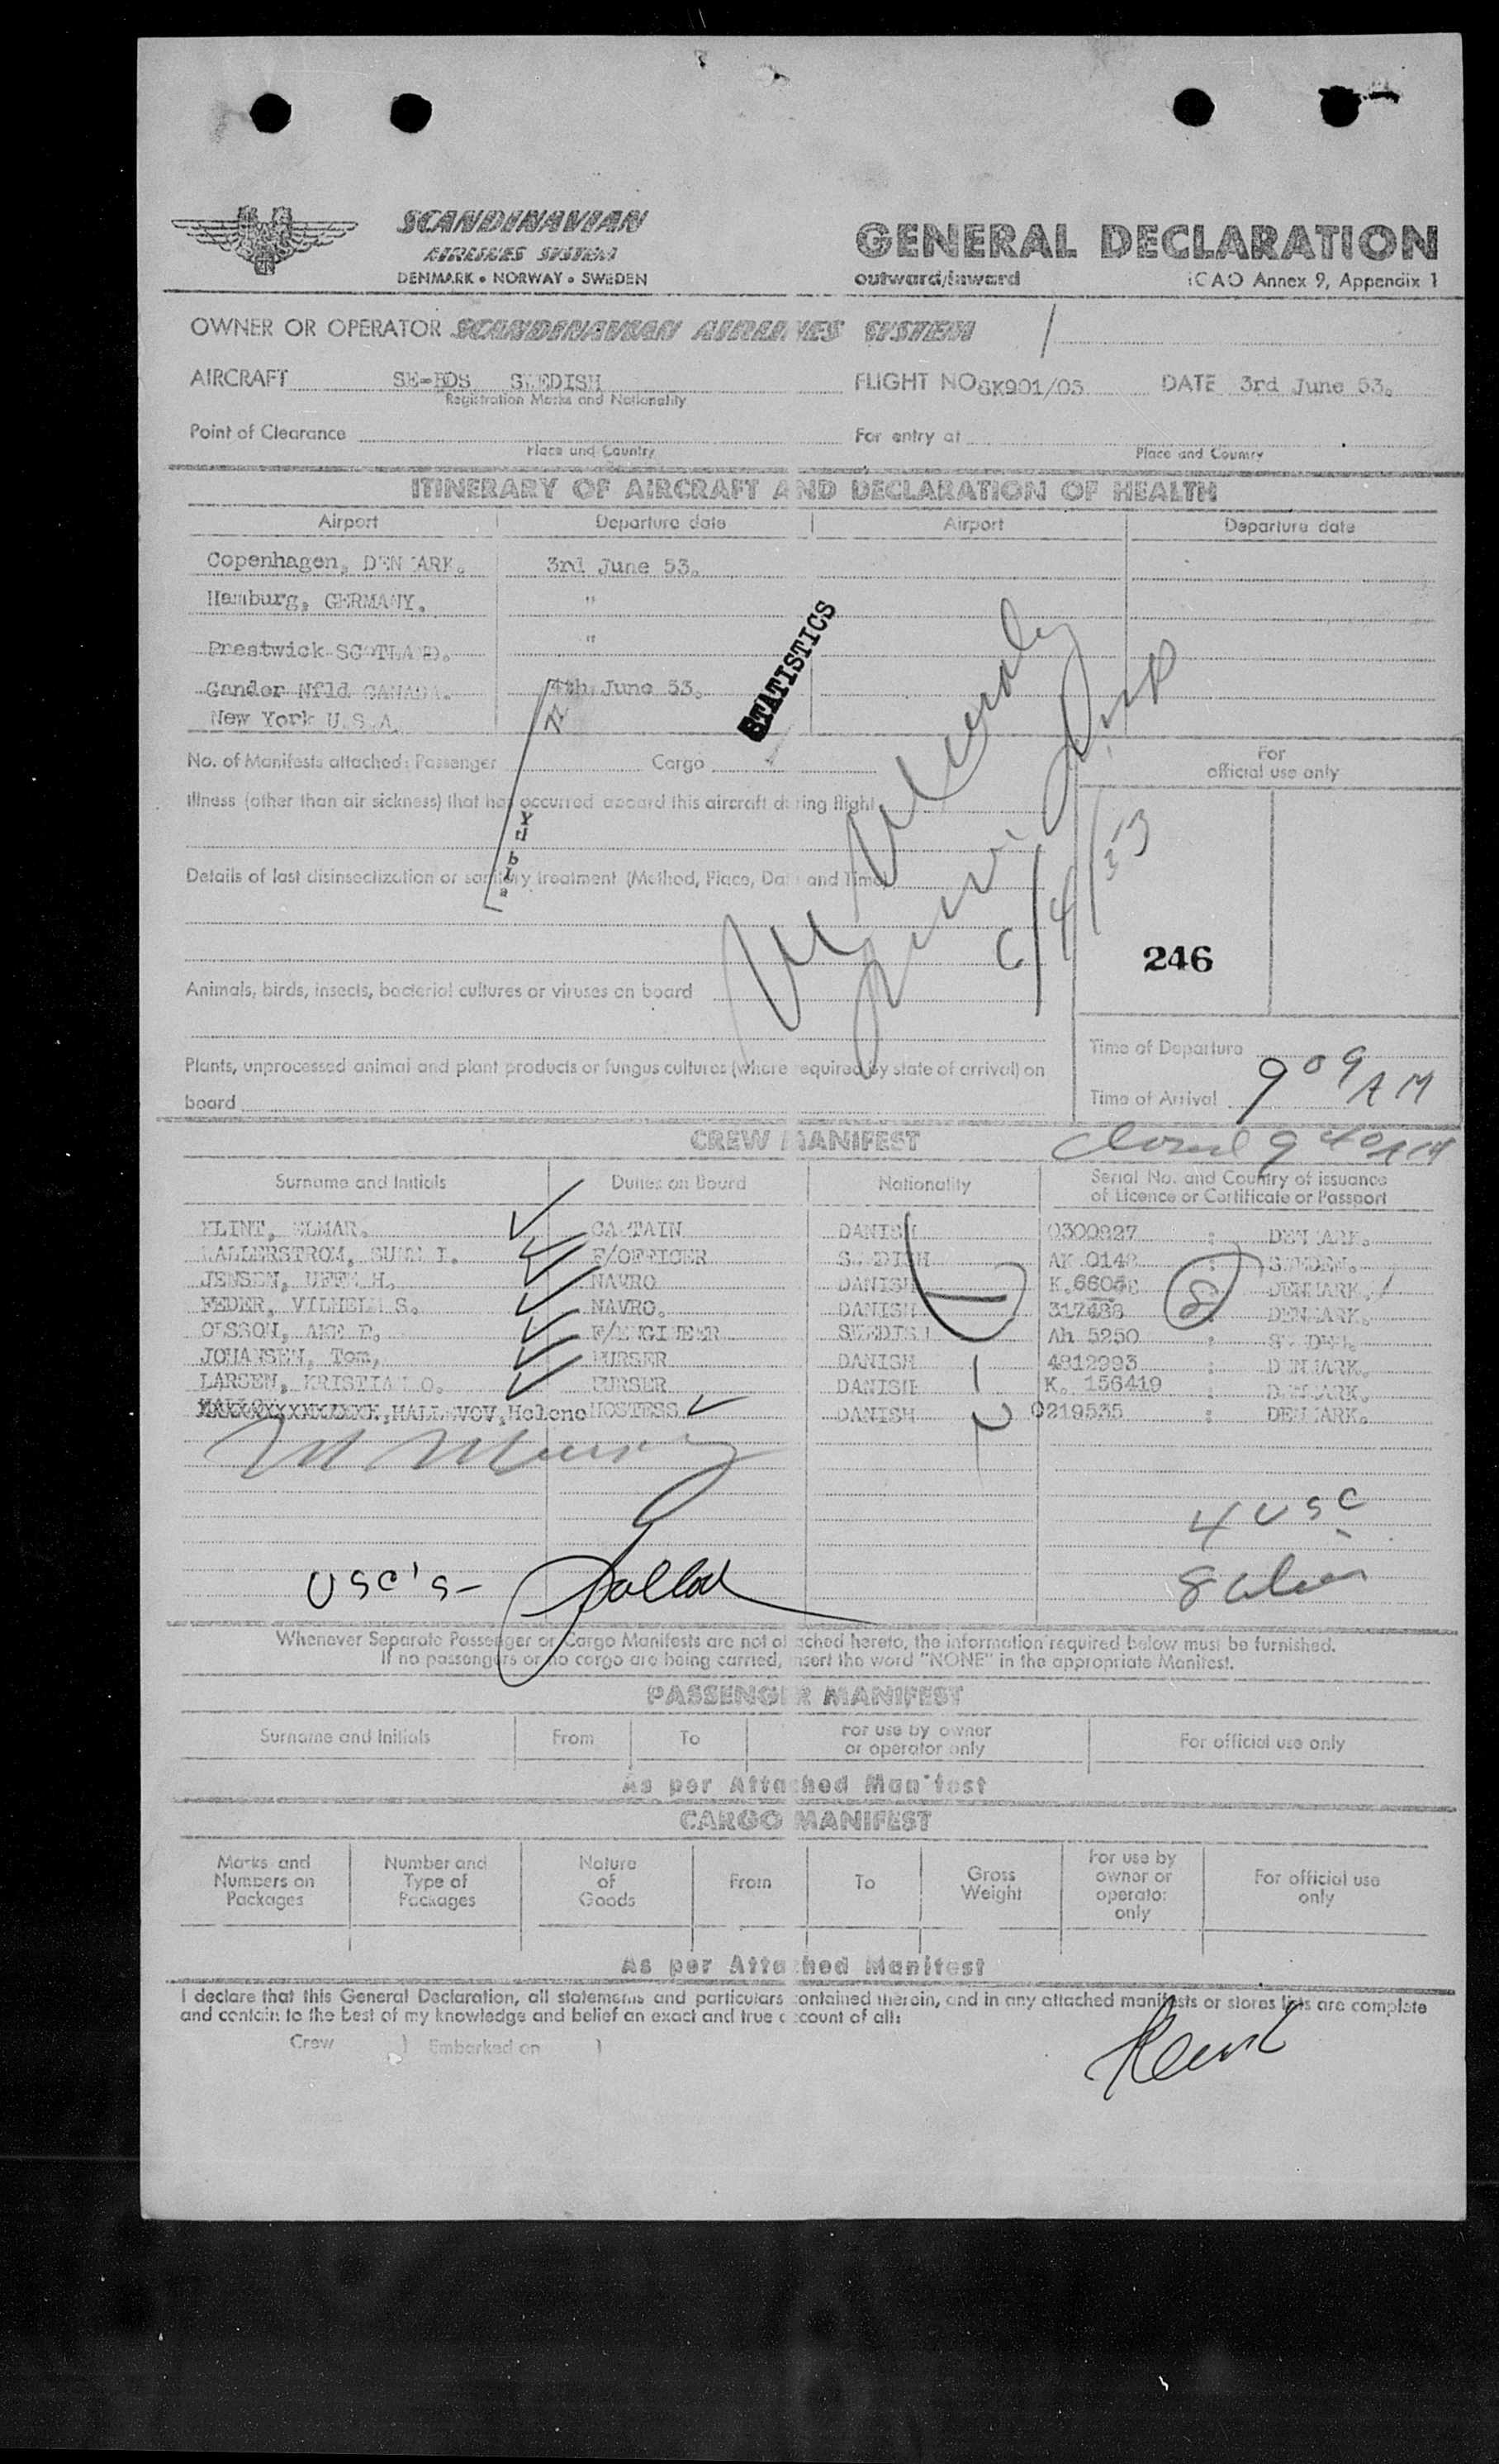 SCANDINAVIAN
AIRLINES SYSTEM
DENMARK • NORWAY • SWEDEN
GENERAL DECLARATION
outward/inward
ICAO Annex 9, Appendix 1
OWNER OR OPERATOR SCANDINAVIAN AIRLINES SYSTEM
AIRCRAFT SE-BDS SWEDISH FLIGHT NO SK901/03 DATE 3rd June 53.
Registration Marks and Nationality
Point of Clearance For entry at
Place and Country Place and Country
ITINERARY OF AIRCRAFT AND DECLARATION OF HEALTH
Airport Departure date Airport Departure date
Copenhagen, DENMARK. 3rd June 53.
Hamburg, GERMANY. "
Prestwick SCOTLAND. "
Gander Nfld CANADA. 4th June 53.
New York U.S.A.
STATISTICS
No. of Manifests attached: Passenger Cargo
For
official use only
Illness (other than air sickness) that has occurred aboard this aircraft during flight
Details of last disinsectization or sanitary treatment (Method, Place, Date and Time)
6/4/53
246
Animals, birds, insects, bacterial cultures or viruses on board
Plants, unprocessed animal and plant products or fungus cultures (where required by state of arrival) on
board
Time of Departure
Time of Arrival 9 09 AM
Closed 9 40 AM
CREW MANIFEST
Surname and Initials Duties on Board Nationality Serial No. and Country of issuance
of Licence or Certificate or Passport
FLINT, ELMAR. CAPTAIN DANISH 0300927 : DENMARK.
WALLERSTROM, SUNE I. F/OFFICER SWEDISH AK 0148 : SWEDEN.
JENSEN, UFFE H. NAVRO DANISH DENMARK.
FEDER, VILHELM S. NAVRO. DANISH 317488 DENMARK.
OLSSON, AKE E. F/ENGINEER SWEDISH Ah 5250 : SWEDEN.
JOHANSEN, Tom, PURSER DANISH 4812993 : DENMARK.
LARSEN, KRISTIAN O. PURSER DANISH K. 156419 : DENMARK.
HALLOVOV, Helene HOSTESS DANISH 0219535 : DENMARK.
8
4 USC
USC's-
8 alien
Whenever Separate Passenger or Cargo Manifests are not attached hereto, the information required below must be furnished.
If no passengers or no cargo are being carried, insert the word "NONE" in the appropriate Manifest.
PASSENGER MANIFEST
Surname and Initials From To For use by owner
or operator only For official use only
As per Attached Manifest
CARGO MANIFEST
Marks and
Numbers on
Packages Number and
Type of
Packages Nature
of
Goods From To Gross
Weight For use by
owner or
operator
only For official use
only
As per Attached Manifest
I declare that this General Declaration, all statements and particulars contained therein, and in any attached manifests or stores lists are complete
and contain to the best of my knowledge and belief an exact and true account of all:
Crew ) Embarked on )